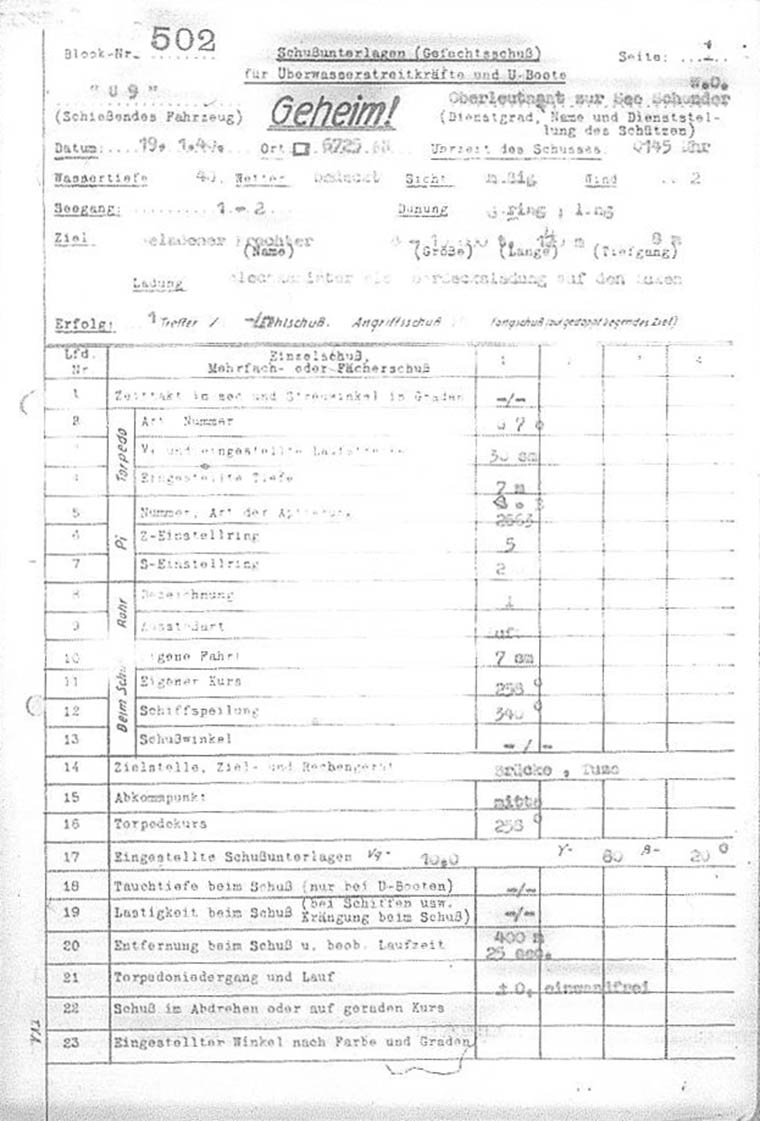 Block-Nr. 502 Schußunterlagen (Gefechtsschuß) Seite: 1
für Überwasserstreitkräfte und U-Boote
"U 9" Geheim! W.O.
Oberleutnant zur See
(Schießendes Fahrzeug) (Dienstgrad, Name und Dienststel-
lung des Schützen)
Datum: 19. 1.40. Ort Uhrzeit des Schusses 0145 Uhr
Wassertiefe 40. Wetter bedeckt Sicht mäßig Wind 2
Seegang: 1 - 2 Dünung gering, lang
Ziel beladener Frachter 8 m
(Name) (Größe) (Länge) (Tiefgang)
Ladung auf den Luken
Erfolg: 1 Treffer / Fehlschuß. Angriffsschuß
Lfd. Nr Einzelschuß, 1 2 3 4
Mehrfach- oder Fächerschuß
1 Zeittakt in sec und Streuwinkel in Graden -/-
Torpedo
2 Art Nummer
3 Vt und eingestellte Laufstrecke 30 sm
4 Eingestellte Tiefe 7 m
Pi
5 Nummer, Art der 2663
6 Z-Einstellring 5
7 S-Einstellring 2
Beim Schuß Rohr
8 Bezeichnung 1
9 Ausstoßart Luft
10 Eigene Fahrt 7 sm
11 Eigener Kurs 258°
12 Schiffspeilung 340°
13 Schußwinkel -/-
14 Zielstelle, Ziel- und Rechengerät Brücke,
15 Abkommpunkt mitte
16 Torpedokurs 258°
17 Eingestellte Schußunterlagen Vg- 10,0 γ- 80 β- 20°
18 Tauchtiefe beim Schuß (nur bei U-Booten) -/-
19 Lastigkeit beim Schuß (bei Schiffen usw. Krängung beim Schuß) -/-
20 Entfernung beim Schuß u. beob. Laufzeit 400 m
25 sec.
21 Torpedoniedergang und Lauf ± 0, einwandfrei
22 Schuß im Abdrehen oder auf geraden Kurs
23 Eingestellter Winkel nach Farbe und Graden